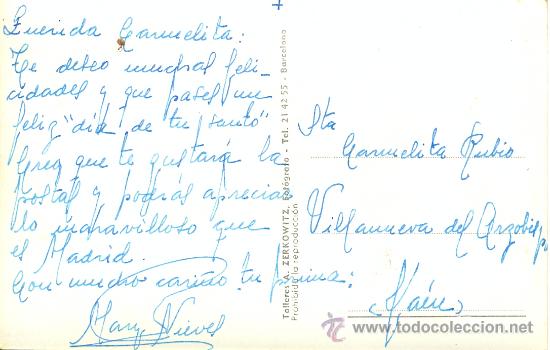 Querida Carmelita:
Te deseo muchas feli-
cidades y que pases un
feliz "día de tu santo"
Creo que te gustará la
postal y podrás apreciar
lo maravilloso que
es Madrid.
Con mucho cariño tu prima:
Mary Nieves
Talleres A. ZERKOWITZ, Fotógrafo - Tel. 21 42 55 - Barcelona
Prohibida la reproducción
Sta
Carmelita Rubio
Villanueva del Arzobispo
(Jaén)
www.todocoleccion.net